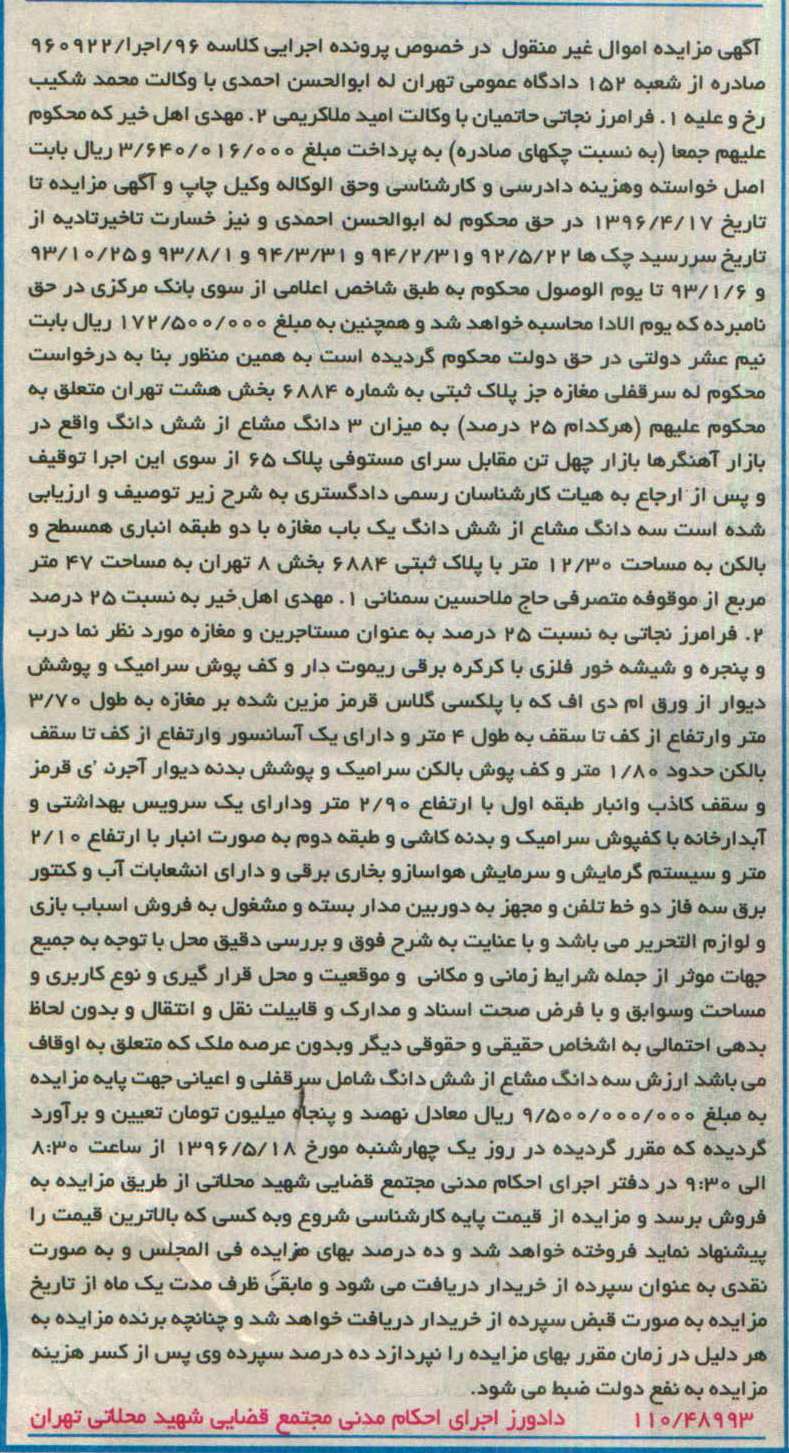 آگهی مزایده اموال غیر منقول در خصوص پرونده اجرایی کلاسه ۹۶/اجرا/۹۶۰۹۲۲
صادره از شعبه ۱۵۲ دادگاه عمومی تهران له ابوالحسن احمدی با وکالت محمد شکیب
رخ و علیه ۱. فرامرز نجاتی حاتمیان با وکالت امید ملاکریمی ۲. مهدی اهل خیر که محکوم
علیهم جمعا (به نسبت چکهای صادره) به پرداخت مبلغ ۳/۶۴۰/۰۱۶/۰۰۰ ریال بابت
اصل خواسته وهزینه دادرسی و کارشناسی وحق الوکاله وکیل چاپ و آگهی مزایده تا
تاریخ ۱۳۹۶/۴/۱۷ در حق محکوم له ابوالحسن احمدی و نیز خسارت تاخیرتادیه از
تاریخ سررسید چک ها ۹۲/۵/۲۲ و۹۴/۲/۳۱ و ۹۴/۳/۳۱ و ۹۳/۸/۱ و۹۳/۱۰/۲۵
و ۹۳/۱/۶ تا یوم الوصول محکوم به طبق شاخص اعلامی از سوی بانک مرکزی در حق
نامبرده که یوم الادا محاسبه خواهد شد و همچنین به مبلغ ۱۷۲/۵۰۰/۰۰۰ ریال بابت
نیم عشر دولتی در حق دولت محکوم گردیده است به همین منظور بنا به درخواست
محکوم له سرقفلی مغازه جز پلاک ثبتی به شماره ۶۸۸۴ بخش هشت تهران متعلق به
محکوم علیهم (هرکدام ۲۵ درصد) به میزان ۳ دانگ مشاع از شش دانگ واقع در
بازار آهنگرها بازار چهل تن مقابل سرای مستوفی پلاک ۶۵ از سوی این اجرا توقیف
و پس از ارجاع به هیات کارشناسان رسمی دادگستری به شرح زیر توصیف و ارزیابی
شده است سه دانگ مشاع از شش دانگ یک باب مغازه با دو طبقه انباری همسطح و
بالکن به مساحت ۱۲/۳۰ متر با پلاک ثبتی ۶۸۸۴ بخش ۸ تهران به مساحت ۴۷ متر
مربع از موقوفه متصرفی حاج ملاحسین سمنانی ۱. مهدی اهل خیر به نسبت ۲۵ درصد
۲. فرامرز نجاتی به نسبت ۲۵ درصد به عنوان مستاجرین و مغازه مورد نظر نما درب
و پنجره و شیشه خور فلزی با کرکره برقی ریموت دار و کف پوش سرامیک و پوشش
دیوار از ورق ام دی اف که با پلکسی گلاس قرمز مزین شده بر مغازه به طول ۳/۷۰
متر وارتفاع از کف تا سقف به طول ۴ متر و دارای یک آسانسور وارتفاع از کف تا سقف
بالکن حدود ۱/۸۰ متر و کف پوش بالکن سرامیک و پوشش بدنه دیوار آجرنـ ی قرمز
و سقف کاذب وانبار طبقه اول با ارتفاع ۲/۹۰ متر ودارای یک سرویس بهداشتی و
آبدارخانه با کفپوش سرامیک و بدنه کاشی و طبقه دوم به صورت انبار با ارتفاع ۲/۱۰
متر و سیستم گرمایش و سرمایش هواسازو بخاری برقی و دارای انشعابات آب و کنتور
برق سه فاز دو خط تلفن و مجهز به دوربین مدار بسته و مشغول به فروش اسباب بازی
و لوازم التحریر می باشد و با عنایت به شرح فوق و بررسی دقیق محل با توجه به جمیع
جهات موثر از جمله شرایط زمانی و مکانی و موقعیت و محل قرار گیری و نوع کاربری و
مساحت وسوابق و با فرض صحت اسناد و مدارک و قابیلت نقل و انتقال و بدون لحاظ
بدهی احتمالی به اشخاص حقیقی و حقوقی دیگر وبدون عرصه ملک که متعلق به اوقاف
می باشد ارزش سه دانگ مشاع از شش دانگ شامل سرقفلی و اعیانی جهت پایه مزایده
به مبلغ ۹/۵۰۰/۰۰۰/۰۰۰ ریال معادل نهصد و پنجاه میلیون تومان تعیین و برآورد
گردیده که مقرر گردیده در روز یک چهارشنبه مورخ ۱۳۹۶/۵/۱۸ از ساعت ۸:۳۰
الی ۹:۳۰ در دفتر اجرای احکام مدنی مجتمع قضایی شهید محلاتی از طریق مزایده به
فروش برسد و مزایده از قیمت پایه کارشناسی شروع وبه کسی که بالاترین قیمت را
پیشنهاد نماید فروخته خواهد شد و ده درصد بهای مزایده فی المجلس و به صورت
نقدی به عنوان سپرده از خریدار دریافت می شود و مابقی ظرف مدت یک ماه از تاریخ
مزایده به صورت قبض سپرده از خریدار دریافت خواهد شد و چنانچه برنده مزایده به
هر دلیل در زمان مقرر بهای مزایده را نپردازد ده درصد سپرده وی پس از کسر هزینه
مزایده به نفع دولت ضبط می شود.
۱۱۰/۴۸۹۹۳ دادورز اجرای احکام مدنی مجتمع قضایی شهید محلاتی تهران